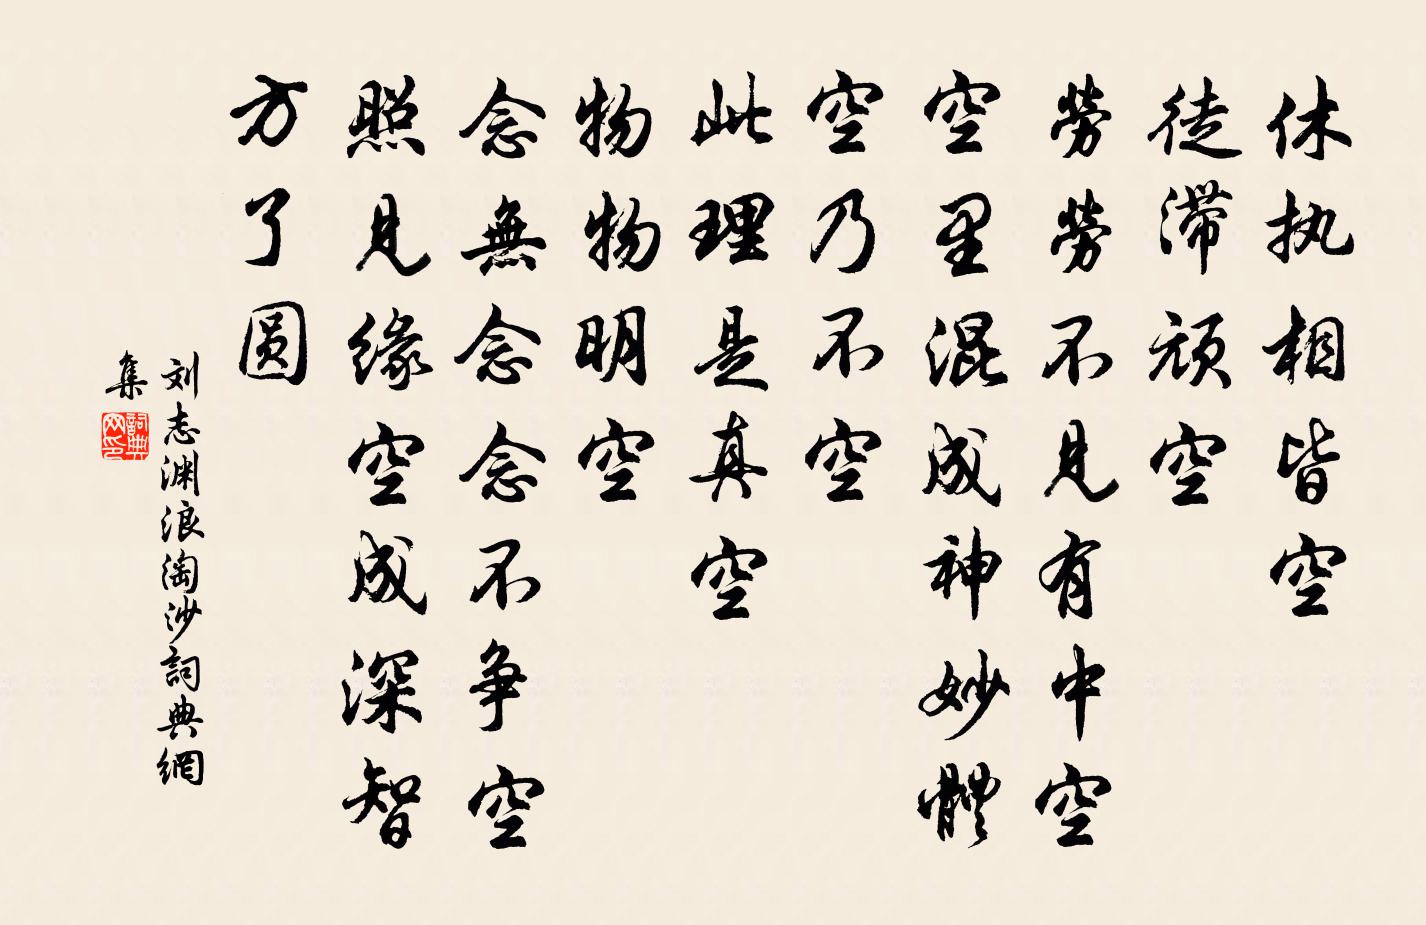 休执相皆空
徒滞顽空
劳劳不见有中空
空里混成神妙體
空乃不空
此理是真空
物物明空
念無念念不争空
照见缘空成深智
方了圆
刘志渊浪淘沙詞典網
集
詞典
网印